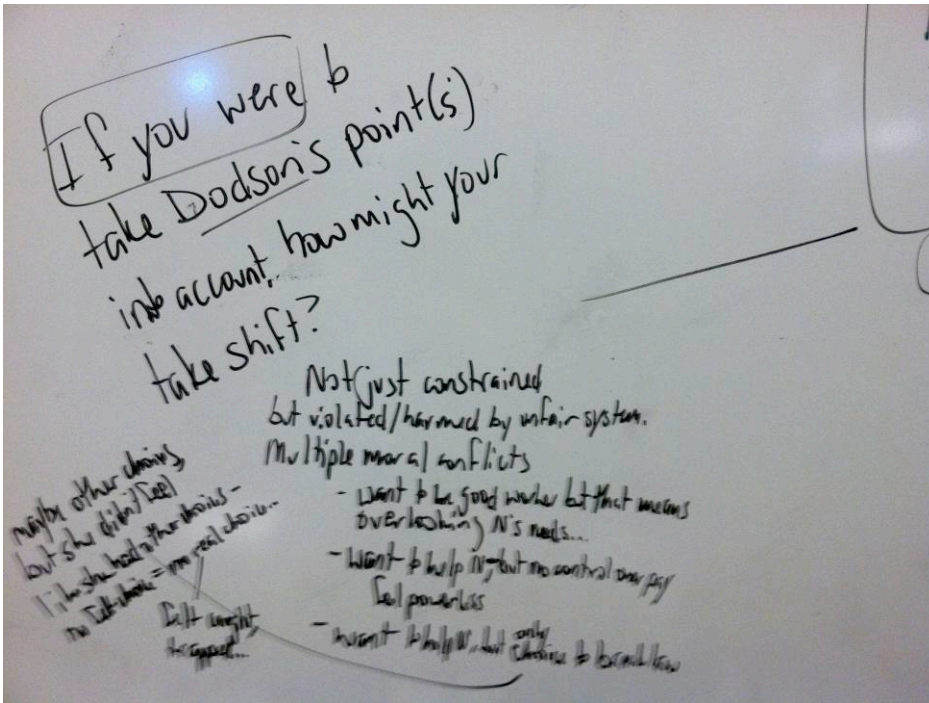 If you were b
take Dodson's point(s)
into account, how might your
take shift?
Not just constrained
but violated/harmed by unfair system.
Multiple moral conflicts
- want to be good worker but that means
overlooking N's needs...
- want to help N, but no control over pay
feel powerless
- want to help N, but only choice to break law
maybe other choices,
but she didn't feel
like she had other choices -
no felt-choice = no real choice...
felt caught,
trapped...